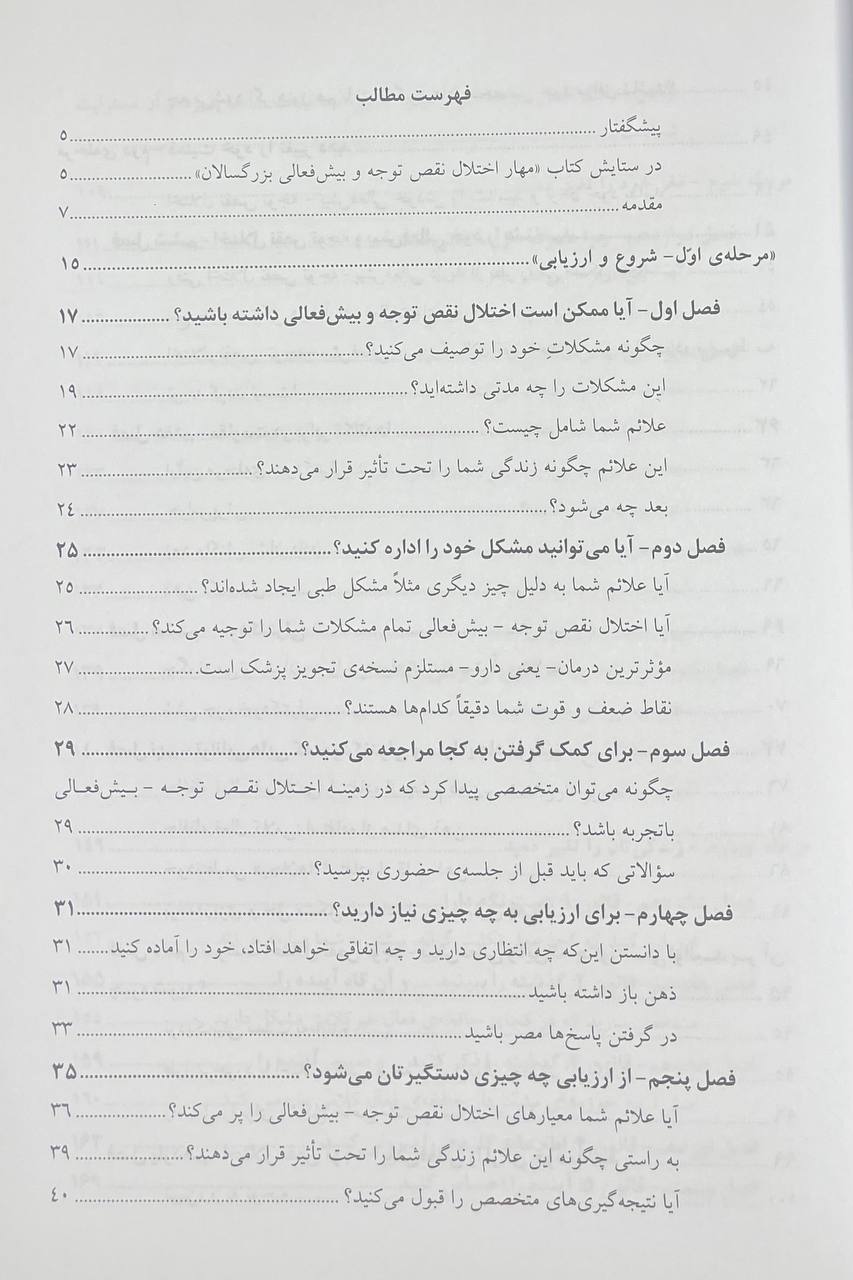 فهرست مطالب
پیشگفتار ... ۵
در ستایش کتاب «مهار اختلال نقص توجه و بیش‌فعالی بزرگسالان» ... ۵
مقدمه ... ۷
«مرحله‌ی اوّل- شروع و ارزیابی» ... ۱۵
فصل اول- آیا ممکن است اختلال نقص توجه و بیش‌فعالی داشته باشید؟ ... ۱۷
چگونه مشکلاتِ خود را توصیف می‌کنید؟ ... ۱۷
این مشکلات را چه مدتی داشته‌اید؟ ... ۱۹
علائم شما شامل چیست؟ ... ۲۲
این علائم چگونه زندگی شما را تحت تأثیر قرار می‌دهند؟ ... ۲۳
بعد چه می‌شود؟ ... ۲۴
فصل دوم- آیا می‌توانید مشکل خود را اداره کنید؟ ... ۲۵
آیا علائم شما به دلیل چیز دیگری مثلاً مشکل طبی ایجاد شده‌اند؟ ... ۲۵
آیا اختلال نقص توجه - بیش‌فعالی تمام مشکلات شما را توجیه می‌کند؟ ... ۲۶
مؤثرترین درمان- یعنی دارو- مستلزم نسخه‌ی تجویز پزشک است. ... ۲۷
نقاط ضعف و قوت شما دقیقاً کدام‌ها هستند؟ ... ۲۸
فصل سوم- برای کمک گرفتن به کجا مراجعه می‌کنید؟ ... ۲۹
چگونه می‌توان متخصصی پیدا کرد که در زمینه اختلال نقص توجه - بیش‌فعالی
باتجربه باشد؟ ... ۲۹
سؤالاتی که باید قبل از جلسه‌ی حضوری بپرسید؟ ... ۳۰
فصل چهارم- برای ارزیابی به چه چیزی نیاز دارید؟ ... ۳۱
با دانستن این‌که چه انتظاری دارید و چه اتفاقی خواهد افتاد، خود را آماده کنید ... ۳۱
ذهن باز داشته باشید ... ۳۱
در گرفتن پاسخ‌ها مصر باشید ... ۳۳
فصل پنجم- از ارزیابی چه چیزی دستگیرتان می‌شود؟ ... ۳۵
آیا علائم شما معیارهای اختلال نقص توجه - بیش‌فعالی را پر می‌کند؟ ... ۳۶
به راستی چگونه این علائم زندگی شما را تحت تأثیر قرار می‌دهند؟ ... ۳۹
آیا نتیجه‌گیری‌های متخصص را قبول می‌کنید؟ ... ۴۰